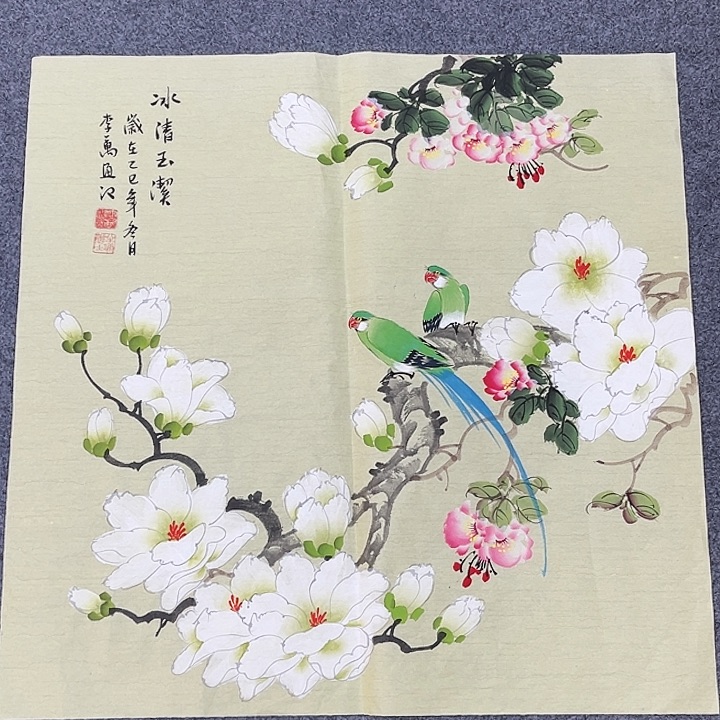 冰清玉潔
歲在乙巳年冬月
李萬通江